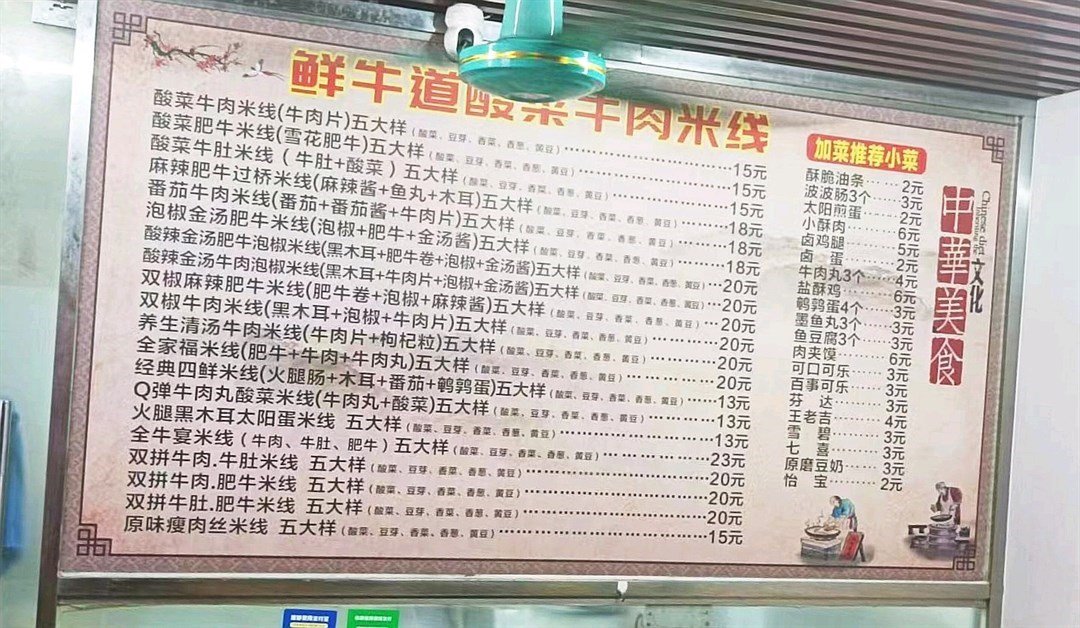 鲜牛道酸菜牛肉米线
酸菜牛肉米线(牛肉片)五大样(酸菜、豆芽、香菜、香葱、黄豆)……15元
酸菜肥牛米线(雪花肥牛)五大样(酸菜、豆芽、香菜、香葱、黄豆)……15元
酸菜牛肚米线（牛肚+酸菜）五大样(酸菜、豆芽、香菜、香葱、黄豆)……15元
麻辣肥牛过桥米线(麻辣酱+鱼丸+木耳)五大样(酸菜、豆芽、香菜、香葱、黄豆)……18元
番茄牛肉米线(番茄+番茄酱+牛肉片)五大样(酸菜、豆芽、香菜、香葱、黄豆)……18元
泡椒金汤肥牛米线(泡椒+肥牛+金汤酱)五大样(酸菜、豆芽、香菜、香葱、黄豆)……18元
酸辣金汤肥牛泡椒米线(黑木耳+肥牛卷+泡椒+金汤酱)五大样(酸菜、豆芽、香菜、香葱、黄豆)…20元
酸辣金汤牛肉泡椒米线(黑木耳+牛肉片+泡椒+金汤酱)五大样(酸菜、豆芽、香菜、香葱、黄豆)…20元
双椒麻辣肥牛米线(肥牛卷+泡椒+麻辣酱)五大样(酸菜、豆芽、香菜、香葱、黄豆)……20元
双椒牛肉米线(黑木耳+泡椒+牛肉片)五大样(酸菜、豆芽、香菜、香葱、黄豆)……20元
养生清汤牛肉米线(牛肉片+枸杞粒)五大样(酸菜、豆芽、香菜、香葱、黄豆)……20元
全家福米线(肥牛+牛肉+牛肉丸)五大样(酸菜、豆芽、香菜、香葱、黄豆)……20元
经典四鲜米线(火腿肠+木耳+番茄+鹌鹑蛋)五大样(酸菜、豆芽、香菜、香葱、黄豆)……13元
Q弹牛肉丸酸菜米线(牛肉丸+酸菜)五大样(酸菜、豆芽、香菜、香葱、黄豆)……13元
火腿黑木耳太阳蛋米线 五大样(酸菜、豆芽、香菜、香葱、黄豆)……13元
全牛宴米线（牛肉、牛肚、肥牛）五大样(酸菜、豆芽、香菜、香葱、黄豆)……23元
双拼牛肉.牛肚米线 五大样(酸菜、豆芽、香菜、香葱、黄豆)……20元
双拼牛肉.肥牛米线 五大样(酸菜、豆芽、香菜、香葱、黄豆)……20元
双拼牛肚.肥牛米线 五大样(酸菜、豆芽、香菜、香葱、黄豆)……20元
原味瘦肉丝米线 五大样(酸菜、豆芽、香菜、香葱、黄豆)……15元
加菜推荐小菜
酥脆油条……2元
波波肠3个……3元
太阳煎蛋……2元
小酥肉……6元
卤鸡腿……5元
卤 蛋……2元
牛肉丸3个……4元
盐酥鸡……6元
鹌鹑蛋4个……3元
墨鱼丸3个……3元
鱼豆腐3个……3元
肉夹馍……6元
可口可乐……3元
百事可乐……3元
芬 达……3元
王老吉……4元
雪 碧……3元
七 喜……3元
原磨豆奶……3元
怡 宝……2元
中華美食
文化